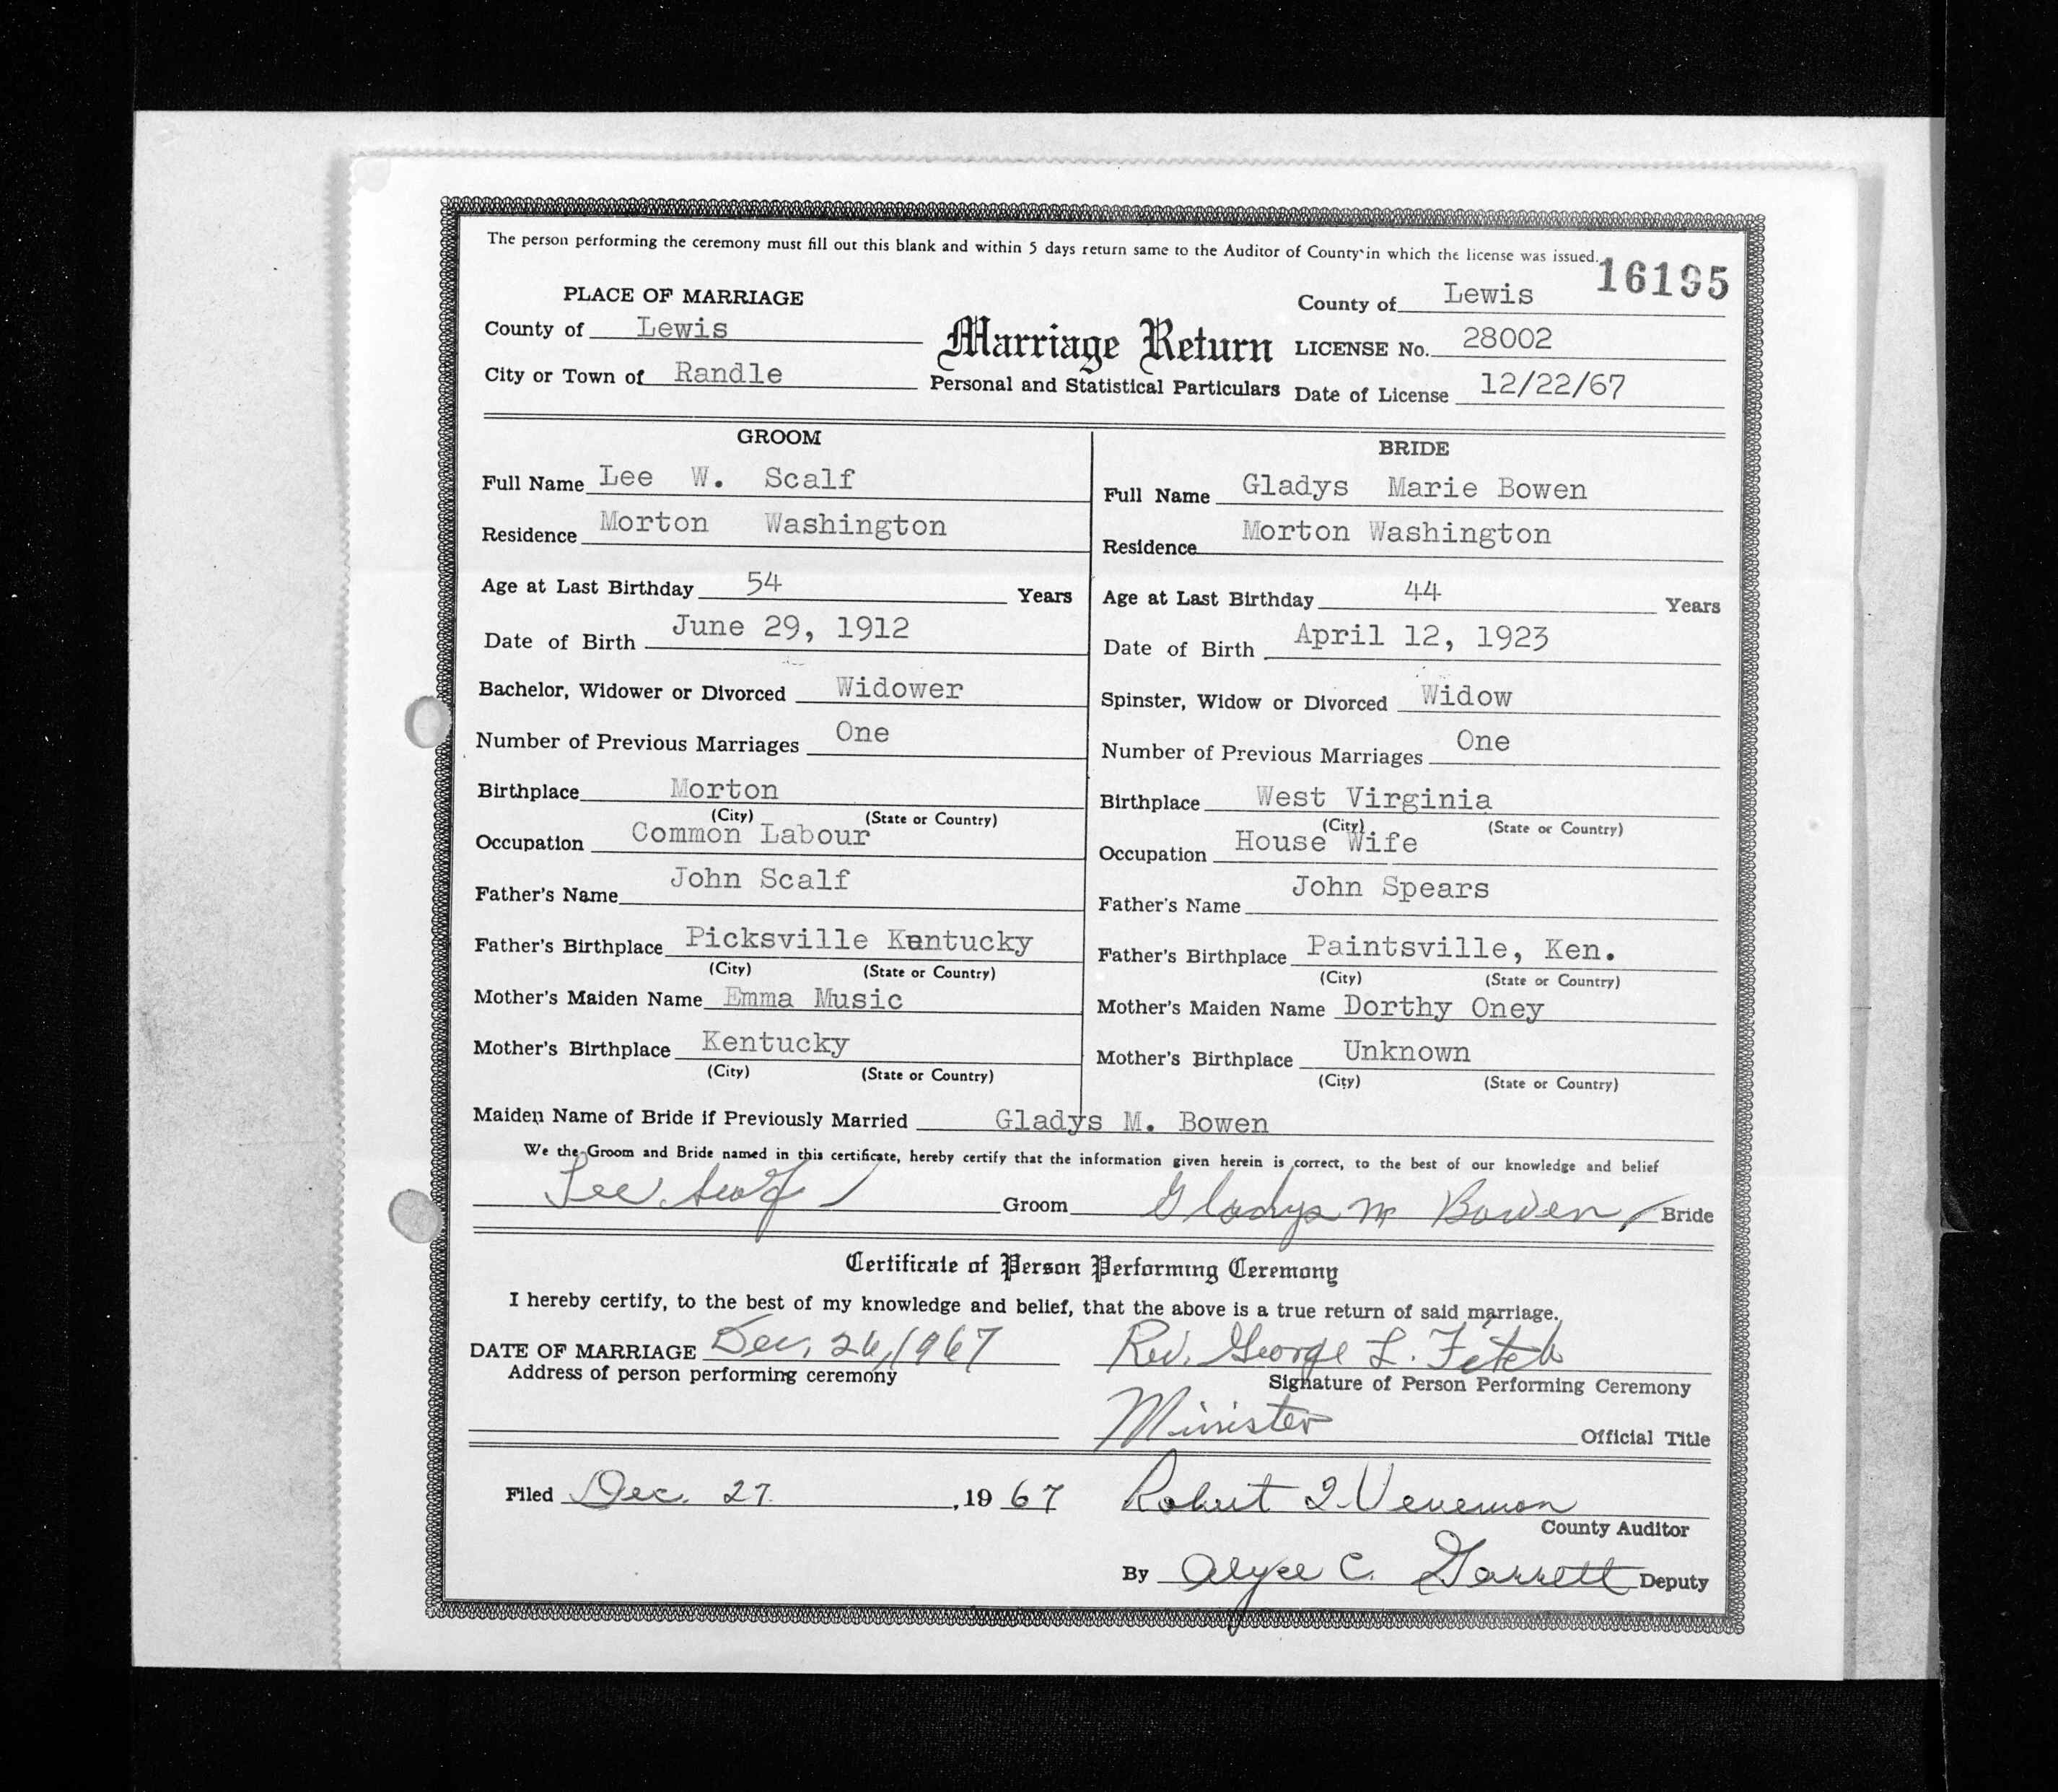 The person performing the ceremony must fill out this blank and within 5 days return same to the Auditor of County in which the license was issued.
16195
PLACE OF MARRIAGE
County of Lewis
County of Lewis
Marriage Return
LICENSE No. 28002
City or Town of Randle
Personal and Statistical Particulars
Date of License 12/22/67
GROOM
Full Name Lee W. Scalf
Residence Morton Washington
Age at Last Birthday 54 Years
Date of Birth June 29, 1912
Bachelor, Widower or Divorced Widower
Number of Previous Marriages One
Birthplace Morton
(City) (State or Country)
Occupation Common Labour
Father's Name John Scalf
Father's Birthplace Picksville Kentucky
(City) (State or Country)
Mother's Maiden Name Emma Music
Mother's Birthplace Kentucky
(City) (State or Country)
BRIDE
Full Name Gladys Marie Bowen
Residence Morton Washington
Age at Last Birthday 44 Years
Date of Birth April 12, 1923
Spinster, Widow or Divorced Widow
Number of Previous Marriages One
Birthplace West Virginia
(City) (State or Country)
Occupation House Wife
Father's Name John Spears
Father's Birthplace Paintsville, Ken.
(City) (State or Country)
Mother's Maiden Name Dorthy Oney
Mother's Birthplace Unknown
(City) (State or Country)
Maiden Name of Bride if Previously Married Gladys M. Bowen
We the Groom and Bride named in this certificate, hereby certify that the information given herein is correct, to the best of our knowledge and belief
Lee Scalf Groom Gladys M Bowen Bride
Certificate of Person Performing Ceremony
I hereby certify, to the best of my knowledge and belief, that the above is a true return of said marriage.
DATE OF MARRIAGE Dec. 26, 1967 Rev. George L.
Address of person performing ceremony
Signature of Person Performing Ceremony
Minister Official Title
Filed Dec. 27, 1967 Robert Veneman
County Auditor
By Alyce C. Garrett Deputy